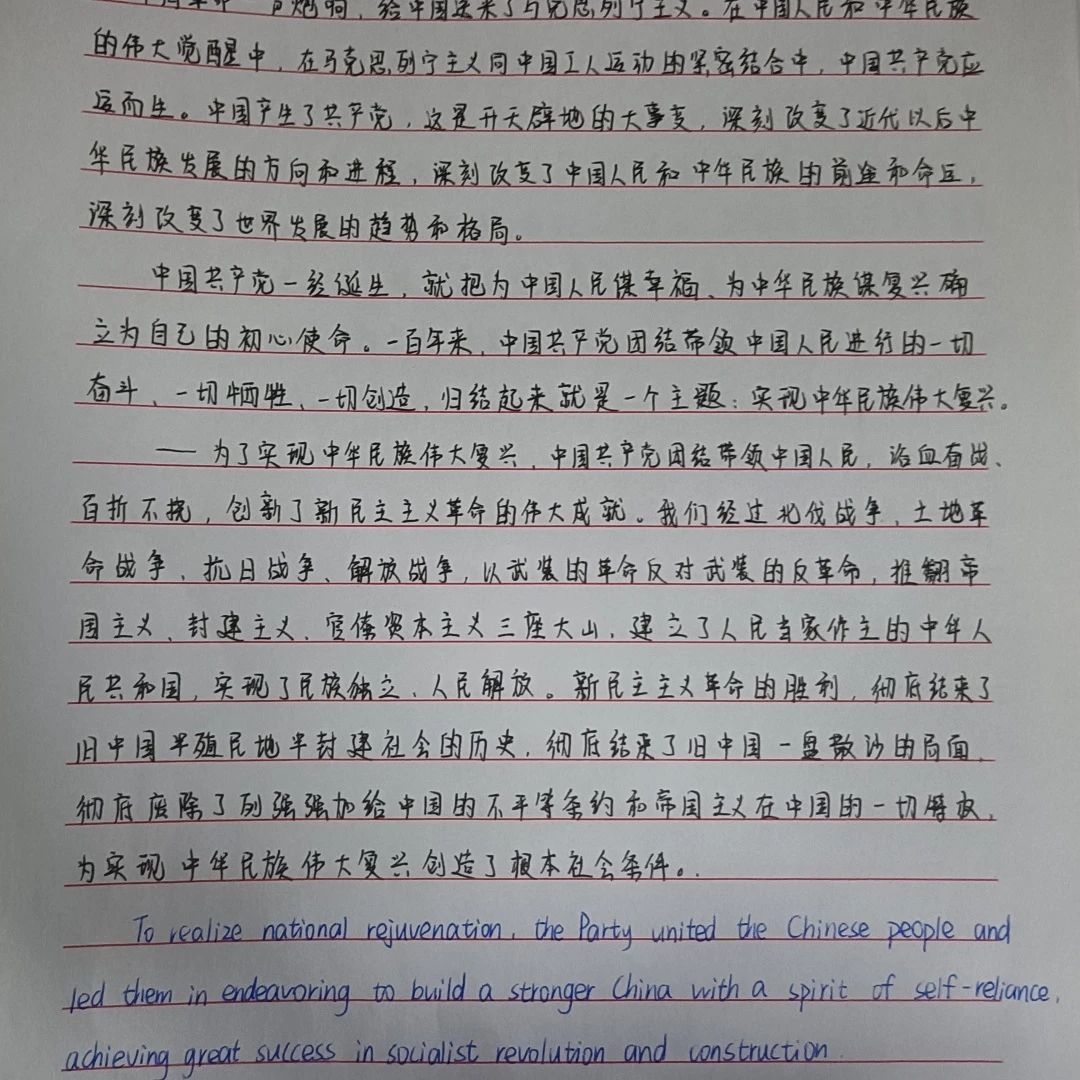 十月革命一声炮响，给中国送来了马克思列宁主义。在中国人民和中华民族
的伟大觉醒中，在马克思列宁主义同中国工人运动的紧密结合中，中国共产党应
运而生。中国产生了共产党，这是开天辟地的大事变，深刻改变了近代以后中
华民族发展的方向和进程，深刻改变了中国人民和中华民族的前途和命运，
深刻改变了世界发展的趋势和格局。
中国共产党一经诞生，就把为中国人民谋幸福、为中华民族谋复兴确
立为自己的初心使命。一百年来，中国共产党团结带领中国人民进行的一切
奋斗、一切牺牲、一切创造，归结起来就是一个主题：实现中华民族伟大复兴。
——为了实现中华民族伟大复兴，中国共产党团结带领中国人民，浴血奋战、
百折不挠，创新了新民主主义革命的伟大成就。我们经过北伐战争、土地革
命战争、抗日战争、解放战争，以武装的革命反对武装的反革命，推翻帝
国主义、封建主义、官僚资本主义三座大山，建立了人民当家作主的中华人
民共和国，实现了民族独立、人民解放。新民主主义革命的胜利，彻底结束了
旧中国半殖民地半封建社会的历史，彻底结束了旧中国一盘散沙的局面，
彻底废除了列强强加给中国的不平等条约和帝国主义在中国的一切特权，
为实现中华民族伟大复兴创造了根本社会条件。
To realize national rejuvenation, the Party united the Chinese people and
led them in endeavoring to build a stronger China with a spirit of self-reliance,
achieving great success in socialist revolution and construction.